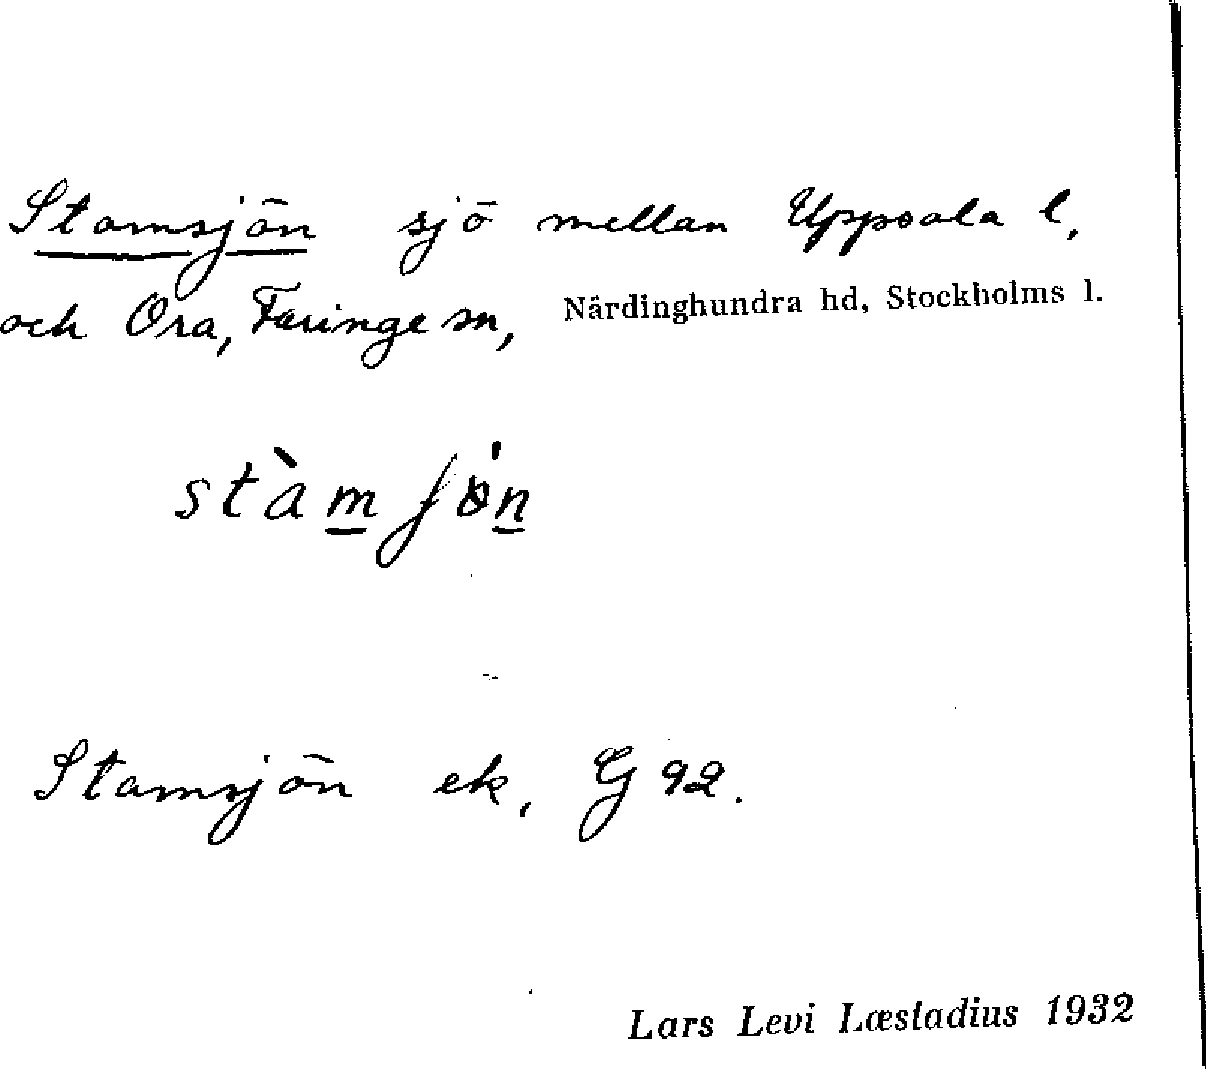 Stamsjön sjö mellan Uppsala l,
och Ora, Faringe sn, Närdinghundra hd, Stockholms l.
stàmʃön
Stamsjön ek, G 92.
Lars Levi Læstadius 1932